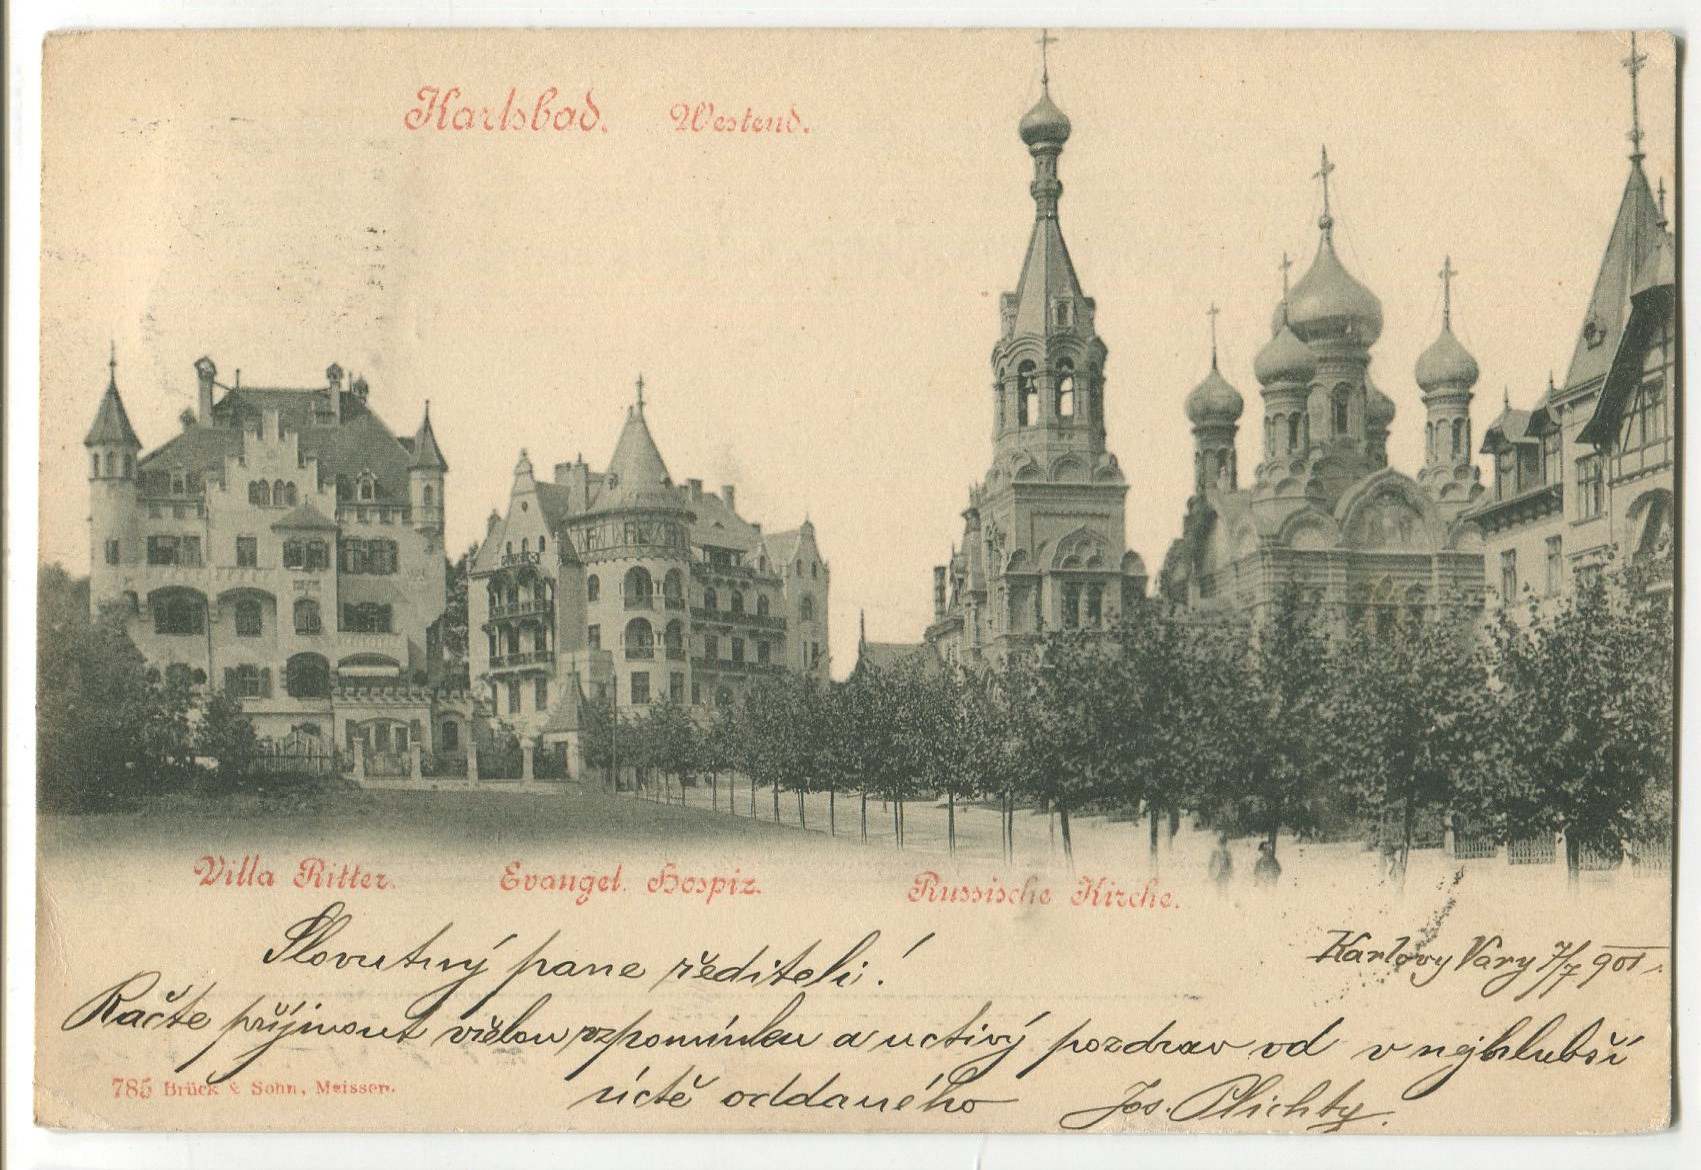 Karlsbad. Westend.
Villa Ritter. Evangel. Hospiz. Russische Kirche.
Slovutný pane řediteli!
Karlovy Vary 7/7 901.
Račte příjmout vřelou vzpomínku a uctivý pozdrav od v nejhlubší
úctě oddaného Jos. Plichty.
785 Brück & Sohn, Meissen.